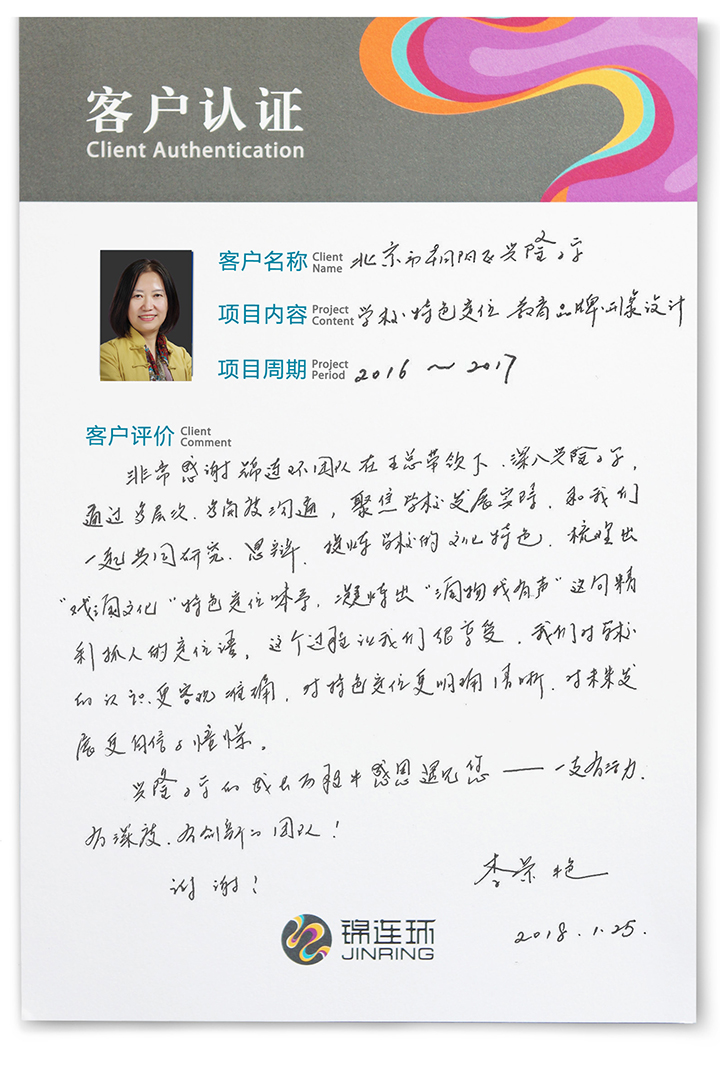 客户认证
Client Authentication
客户名称 Client Name 北京市朝阳区兴隆小学
项目内容 Project Content 学校特色定位 教育品牌画册设计
项目周期 Project Period 2016 ~ 2017
客户评价 Client Comment
非常感谢锦连环团队在王总带领下,深入兴隆小学,
通过多层次、多角度沟通,聚焦学校发展实际,和我们
一起共同研究、思辩,提炼学校的文化特色,梳理出
"戏润文化"特色定位,凝炼出"润物戏有声"这句精
彩抓人的定位语,这个过程让我们很享受,我们对学校
的认识更客观准确,对特色定位更明确清晰,对未来发
展更自信与憧憬。
兴隆小学的成长历程中感恩遇见您——一支有活力、
有深度、有创新的团队!
谢谢!
李荣艳
2018.1.25.
锦连环
JINRING